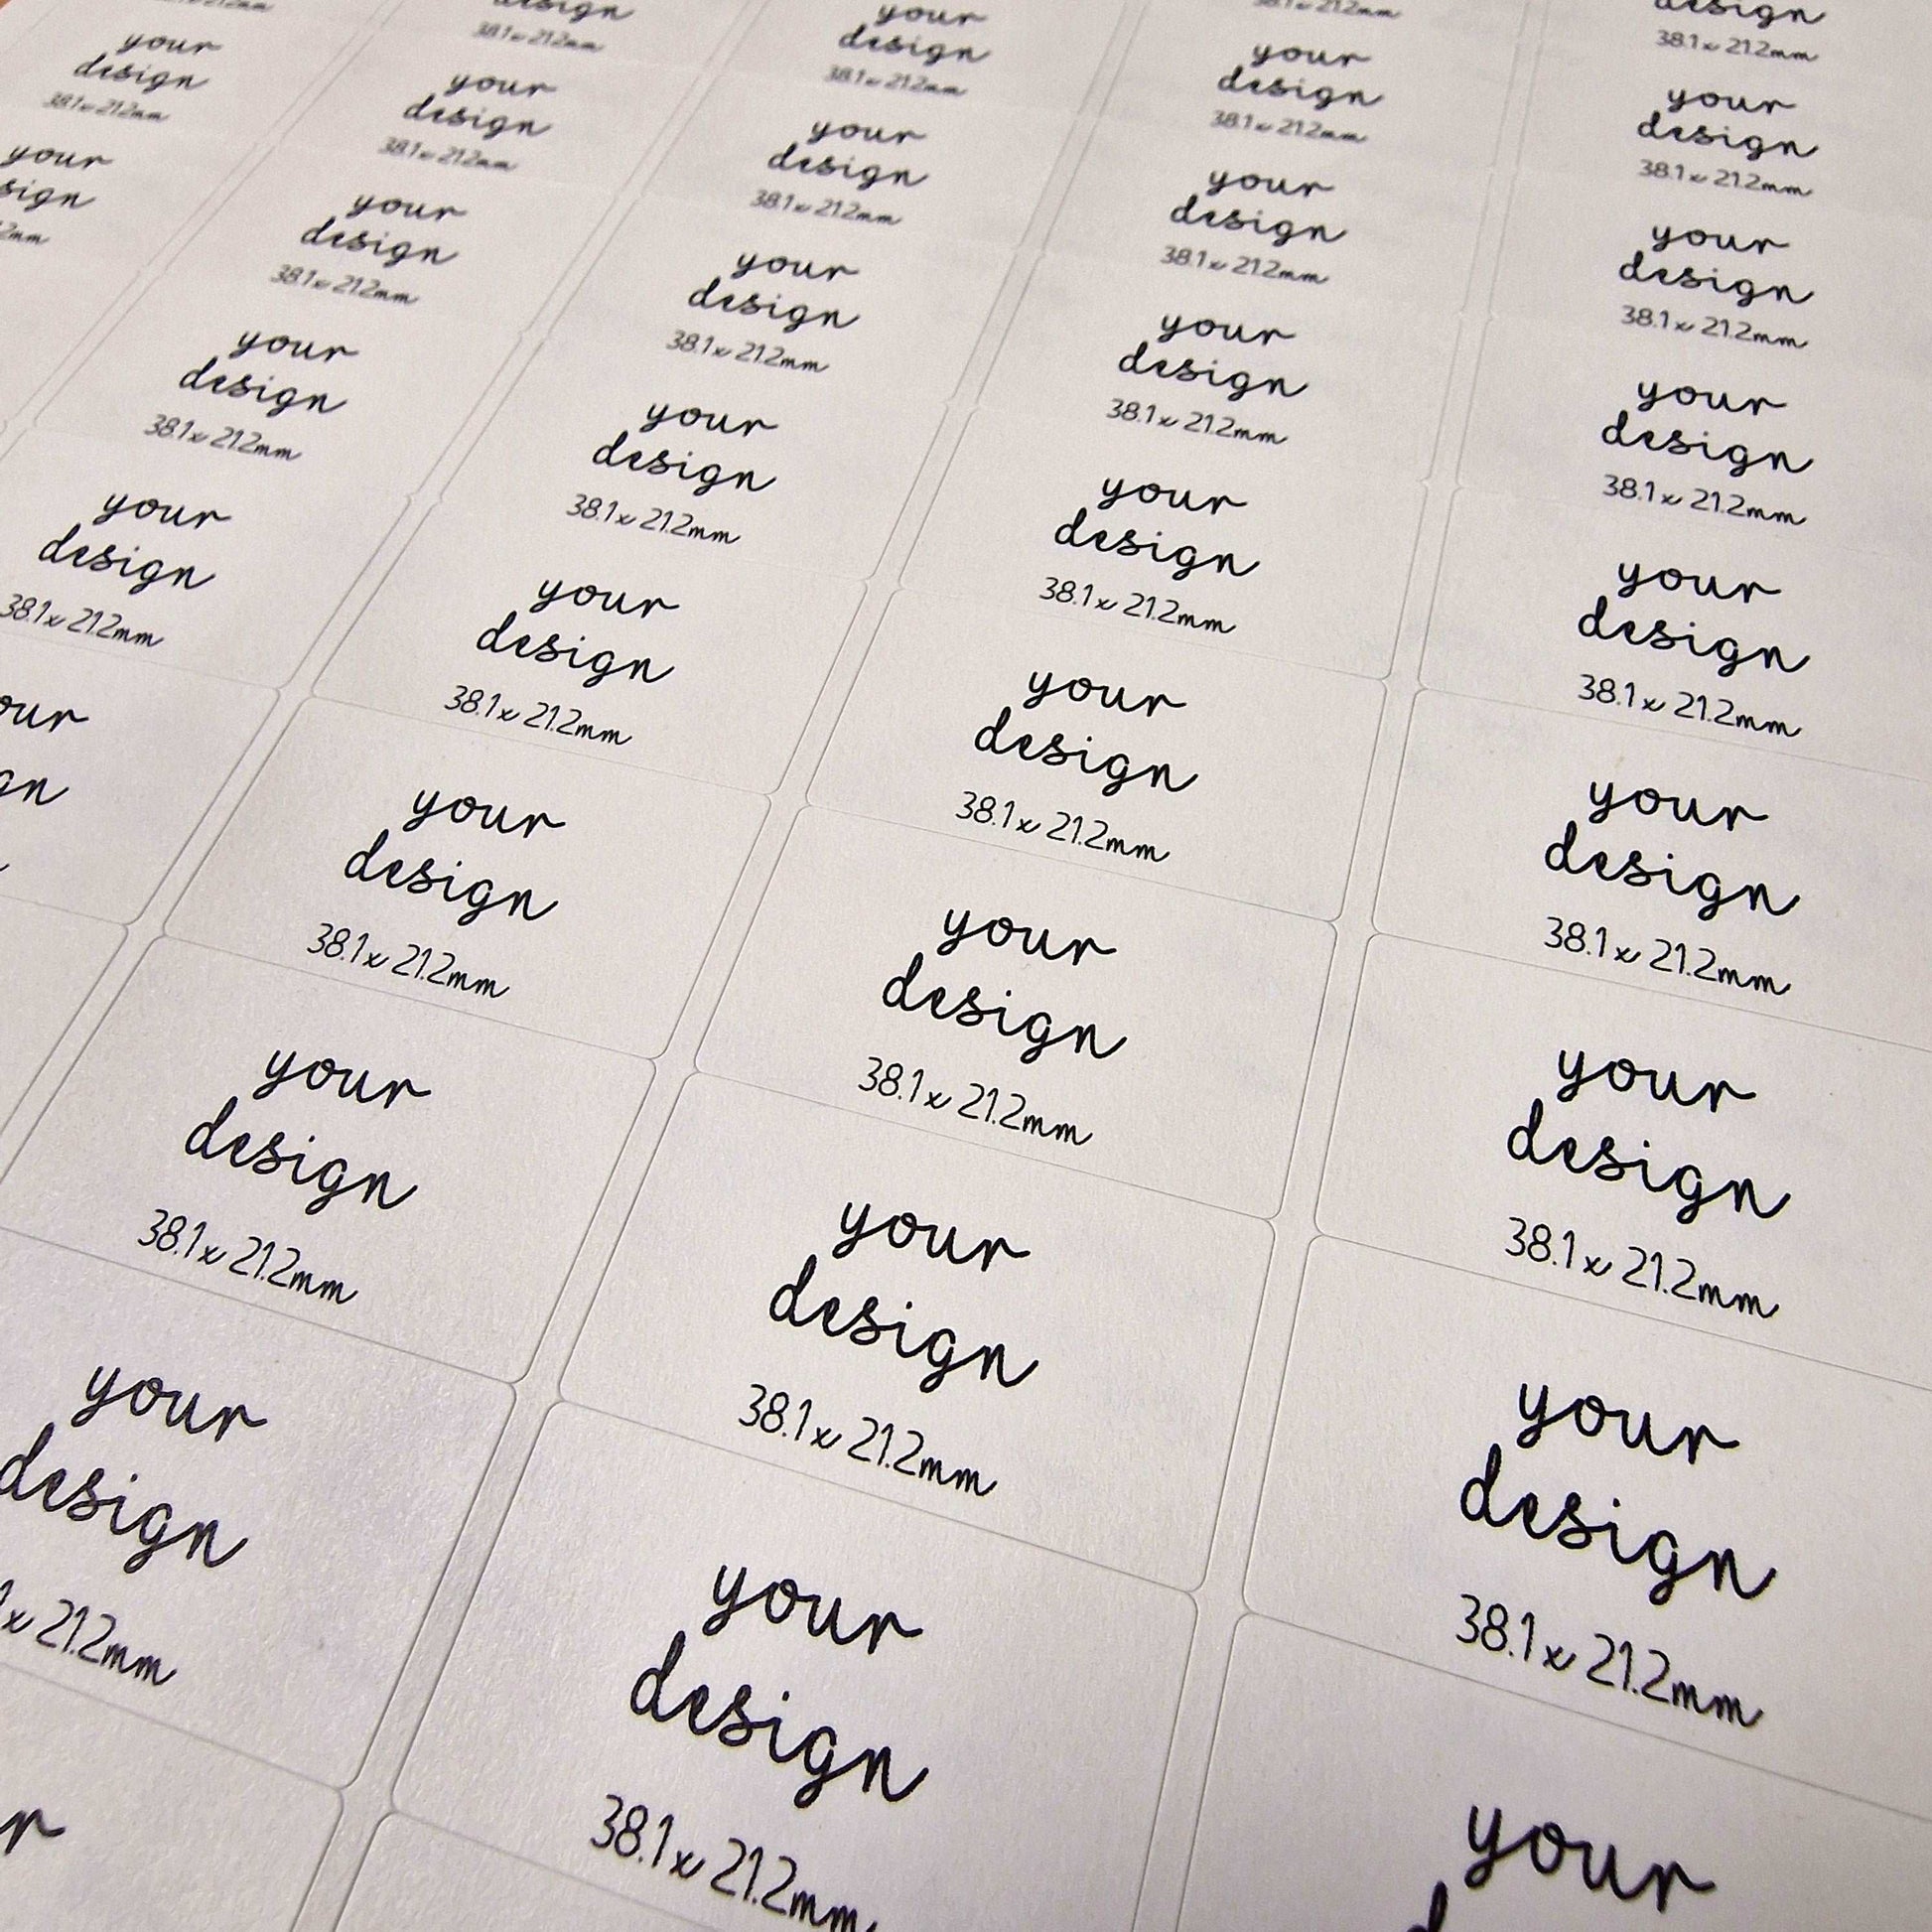 your
design
38.1x 21.2mm
your
design
38.1x 21.2mm
your
design
38.1x 21.2mm
your
design
38.1x 21.2mm
your
design
38.1x 21.2mm
your
design
38.1x 21.2mm
your
design
38.1x 21.2mm
your
design
38.1x 21.2mm
your
design
38.1x 21.2mm
your
design
38.1x 21.2mm
your
design
38.1x 21.2mm
your
design
38.1x 21.2mm
your
design
38.1x 21.2mm
your
design
21.2mm
38.1x 21.2mm
your
design
38.1x 21.2mm
your
design
38.1x 21.2mm
your
design
38.1x 21.2mm
your
design
38.1x 21.2mm
your
design
38.1x 21.2mm
your
design
38.1x 21.2mm
your
design
38.1x 21.2mm
your
design
38.1x 21.2mm
design
38.1x 21.2mm
your
design
38.1x 21.2mm
your
design
38.1x 21.2mm
your
design
38.1x 21.2mm
your
design
38.1x 21.2mm
your
design
38.1x 21.2mm
your
design
38.1x 21.2mm
your
design
38.1x 21.2mm
your